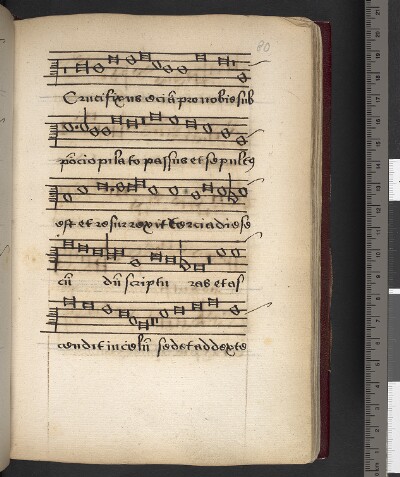 80
Crucifixus eciā pro nobis sub
pōcio pilato passus et sepultꝰ
est et resurrexit tercia die se
cū dū scriptu ras et as
cendit in celū sedet ad dexte